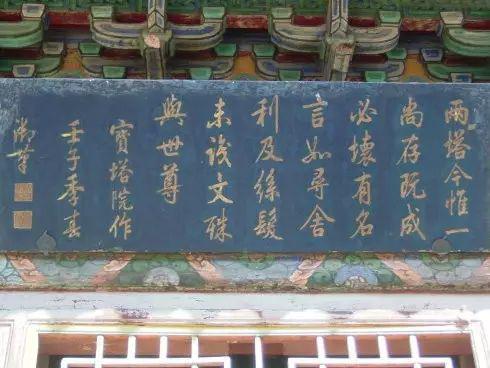 兩塔今惟一
尚存既成
必壞有名
言如尋舍
利及絲髮
未識文殊
與世尊
寶塔院作
壬子季春
御筆